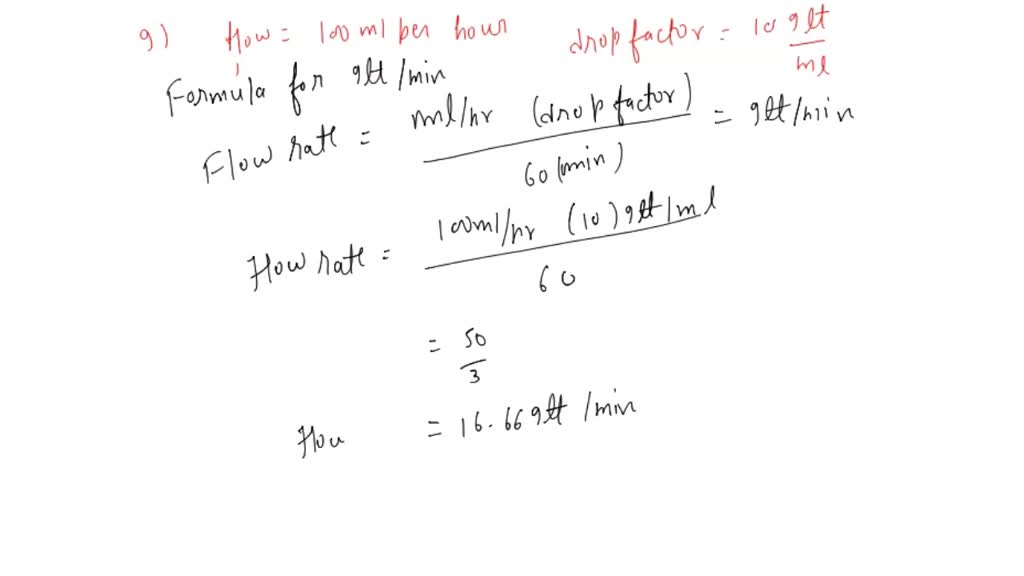 9) Flow = 100 ml per hour drop factor = 10 gtt/ml
Formula for gtt/min
Flow rate = ml/hr (drop factor) / 60 (min) = gtt/min
Flow rate = 100 ml/hr (10) gtt/ml / 60
= 50/3
Flow = 16.66 gtt/min